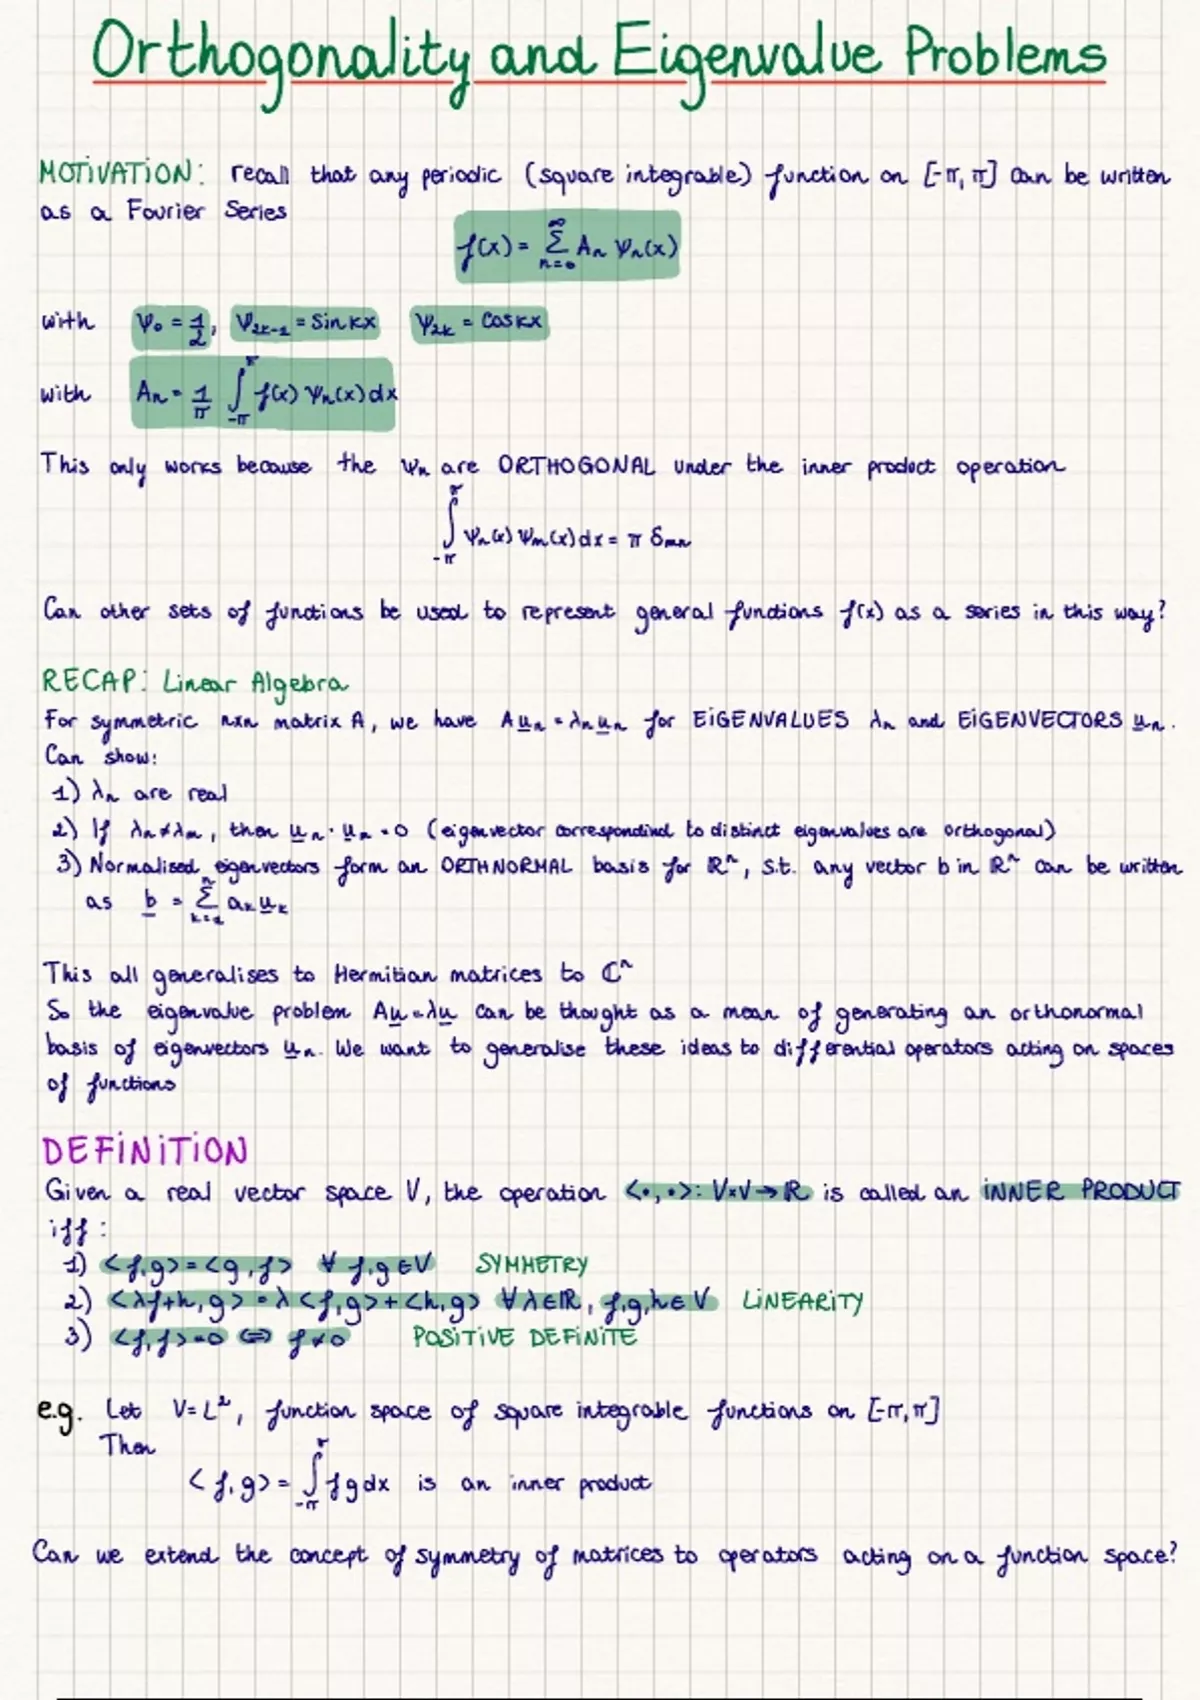 Orthogonality and Eigenvalue Problems
MOTIVATION: recall that any periodic (square integrable) function on [-π, π] can be written
as a Fourier Series
f(x) = ∞ Σ n=0 An Ψn(x)
with Ψ0 = 1/2, Ψ2k-1 = Sin kx Ψ2k = Cos kx
with An = 1/π ∫ π -π f(x) Ψn(x) dx
This only works because the Ψn are ORTHOGONAL under the inner product operation
∫ π -π Ψn(x) Ψm(x) dx = π δmn
Can other sets of functions be used to represent general functions f(x) as a series in this way?
RECAP: Linear Algebra
For symmetric nxn matrix A, we have A un = λn un for EIGENVALUES λn and EIGENVECTORS un.
Can show:
1) λn are real
2) If λn ≠ λm, then un · um = 0 (eigenvector correspondind to distinct eigenvalues are orthogonal)
3) Normalised eigenvectors form an ORTHNORMAL basis for ℝⁿ, s.t. any vector b in ℝⁿ can be written
as b = n Σ k=1 ak uk
This all generalises to Hermitian matrices to ℂⁿ
So the eigenvalue problem Au = λu can be thought as a mean of generating an orthonormal
basis of eigenvectors un. We want to generalise these ideas to differential operators acting on spaces
of functions
DEFINITION
Given a real vector space V, the operation <•,•>: V×V → ℝ is called an INNER PRODUCT
iff:
1) <f,g> = <g,f> ∀ f,g ∈ V SYMMETRY
2) <λf+h, g> = λ<f,g> + <h,g> ∀ λ ∈ ℝ, f,g,h ∈ V LINEARITY
3) <f,f> = 0 ⇔ f ≠ 0 POSITIVE DEFINITE
e.g. Let V = L², function space of square integrable functions on [-π, π]
Then
<f,g> = ∫ π -π f g dx is an inner product
Can we extend the concept of symmetry of matrices to operators acting on a function space?